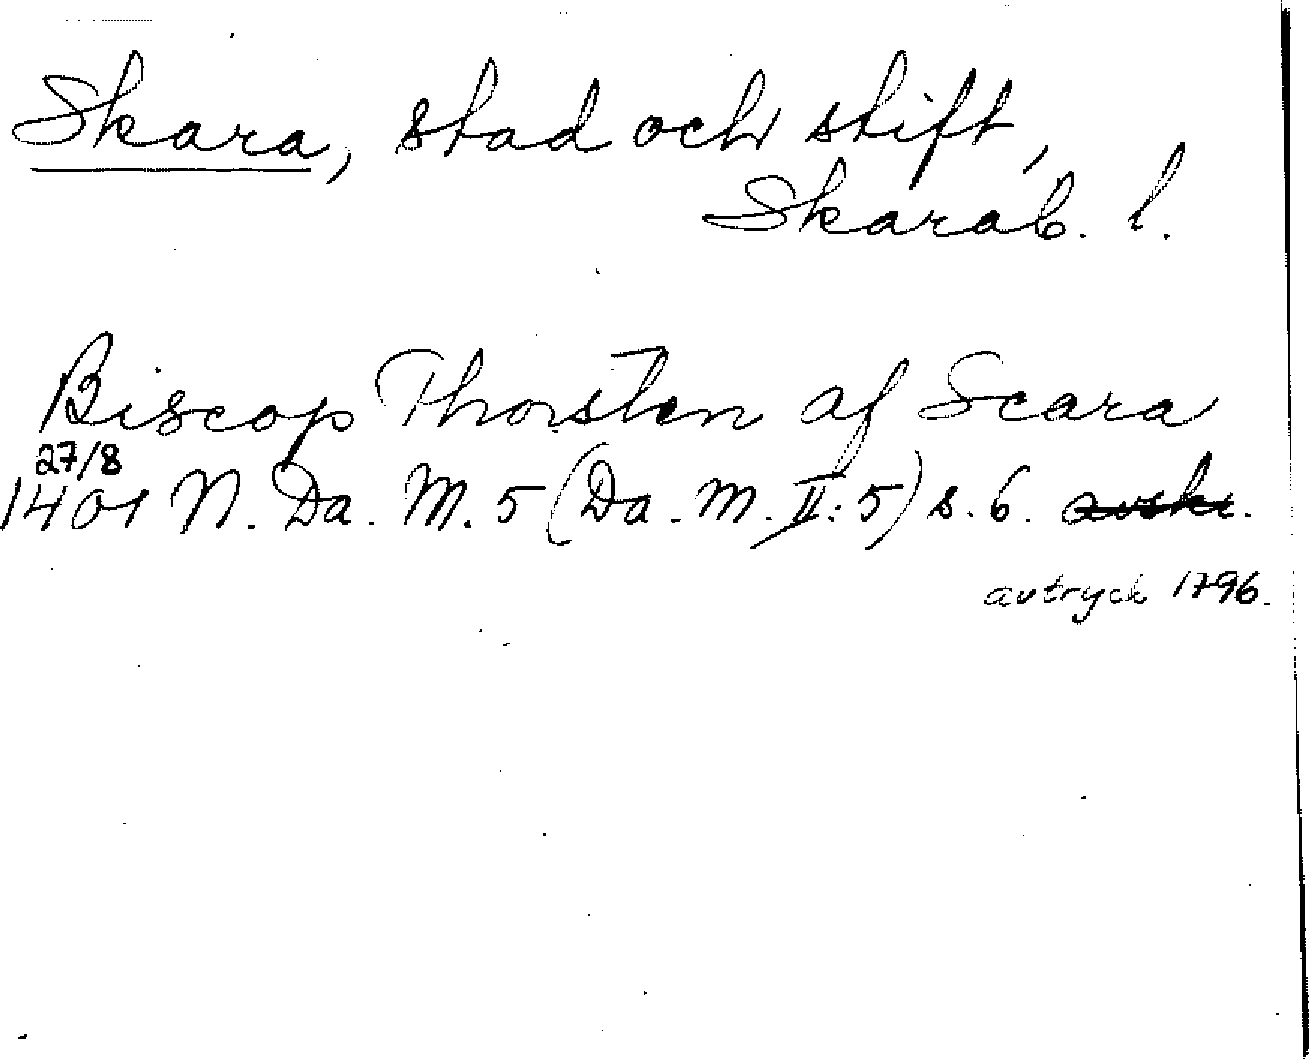 Skara, stad och stift,
Skarab. l.
Biscop Thorsten af Scara
27/8
1401 N. Da. M. 5 (Da. M. II: 5) s. 6. avskr.
avtryck 1796.